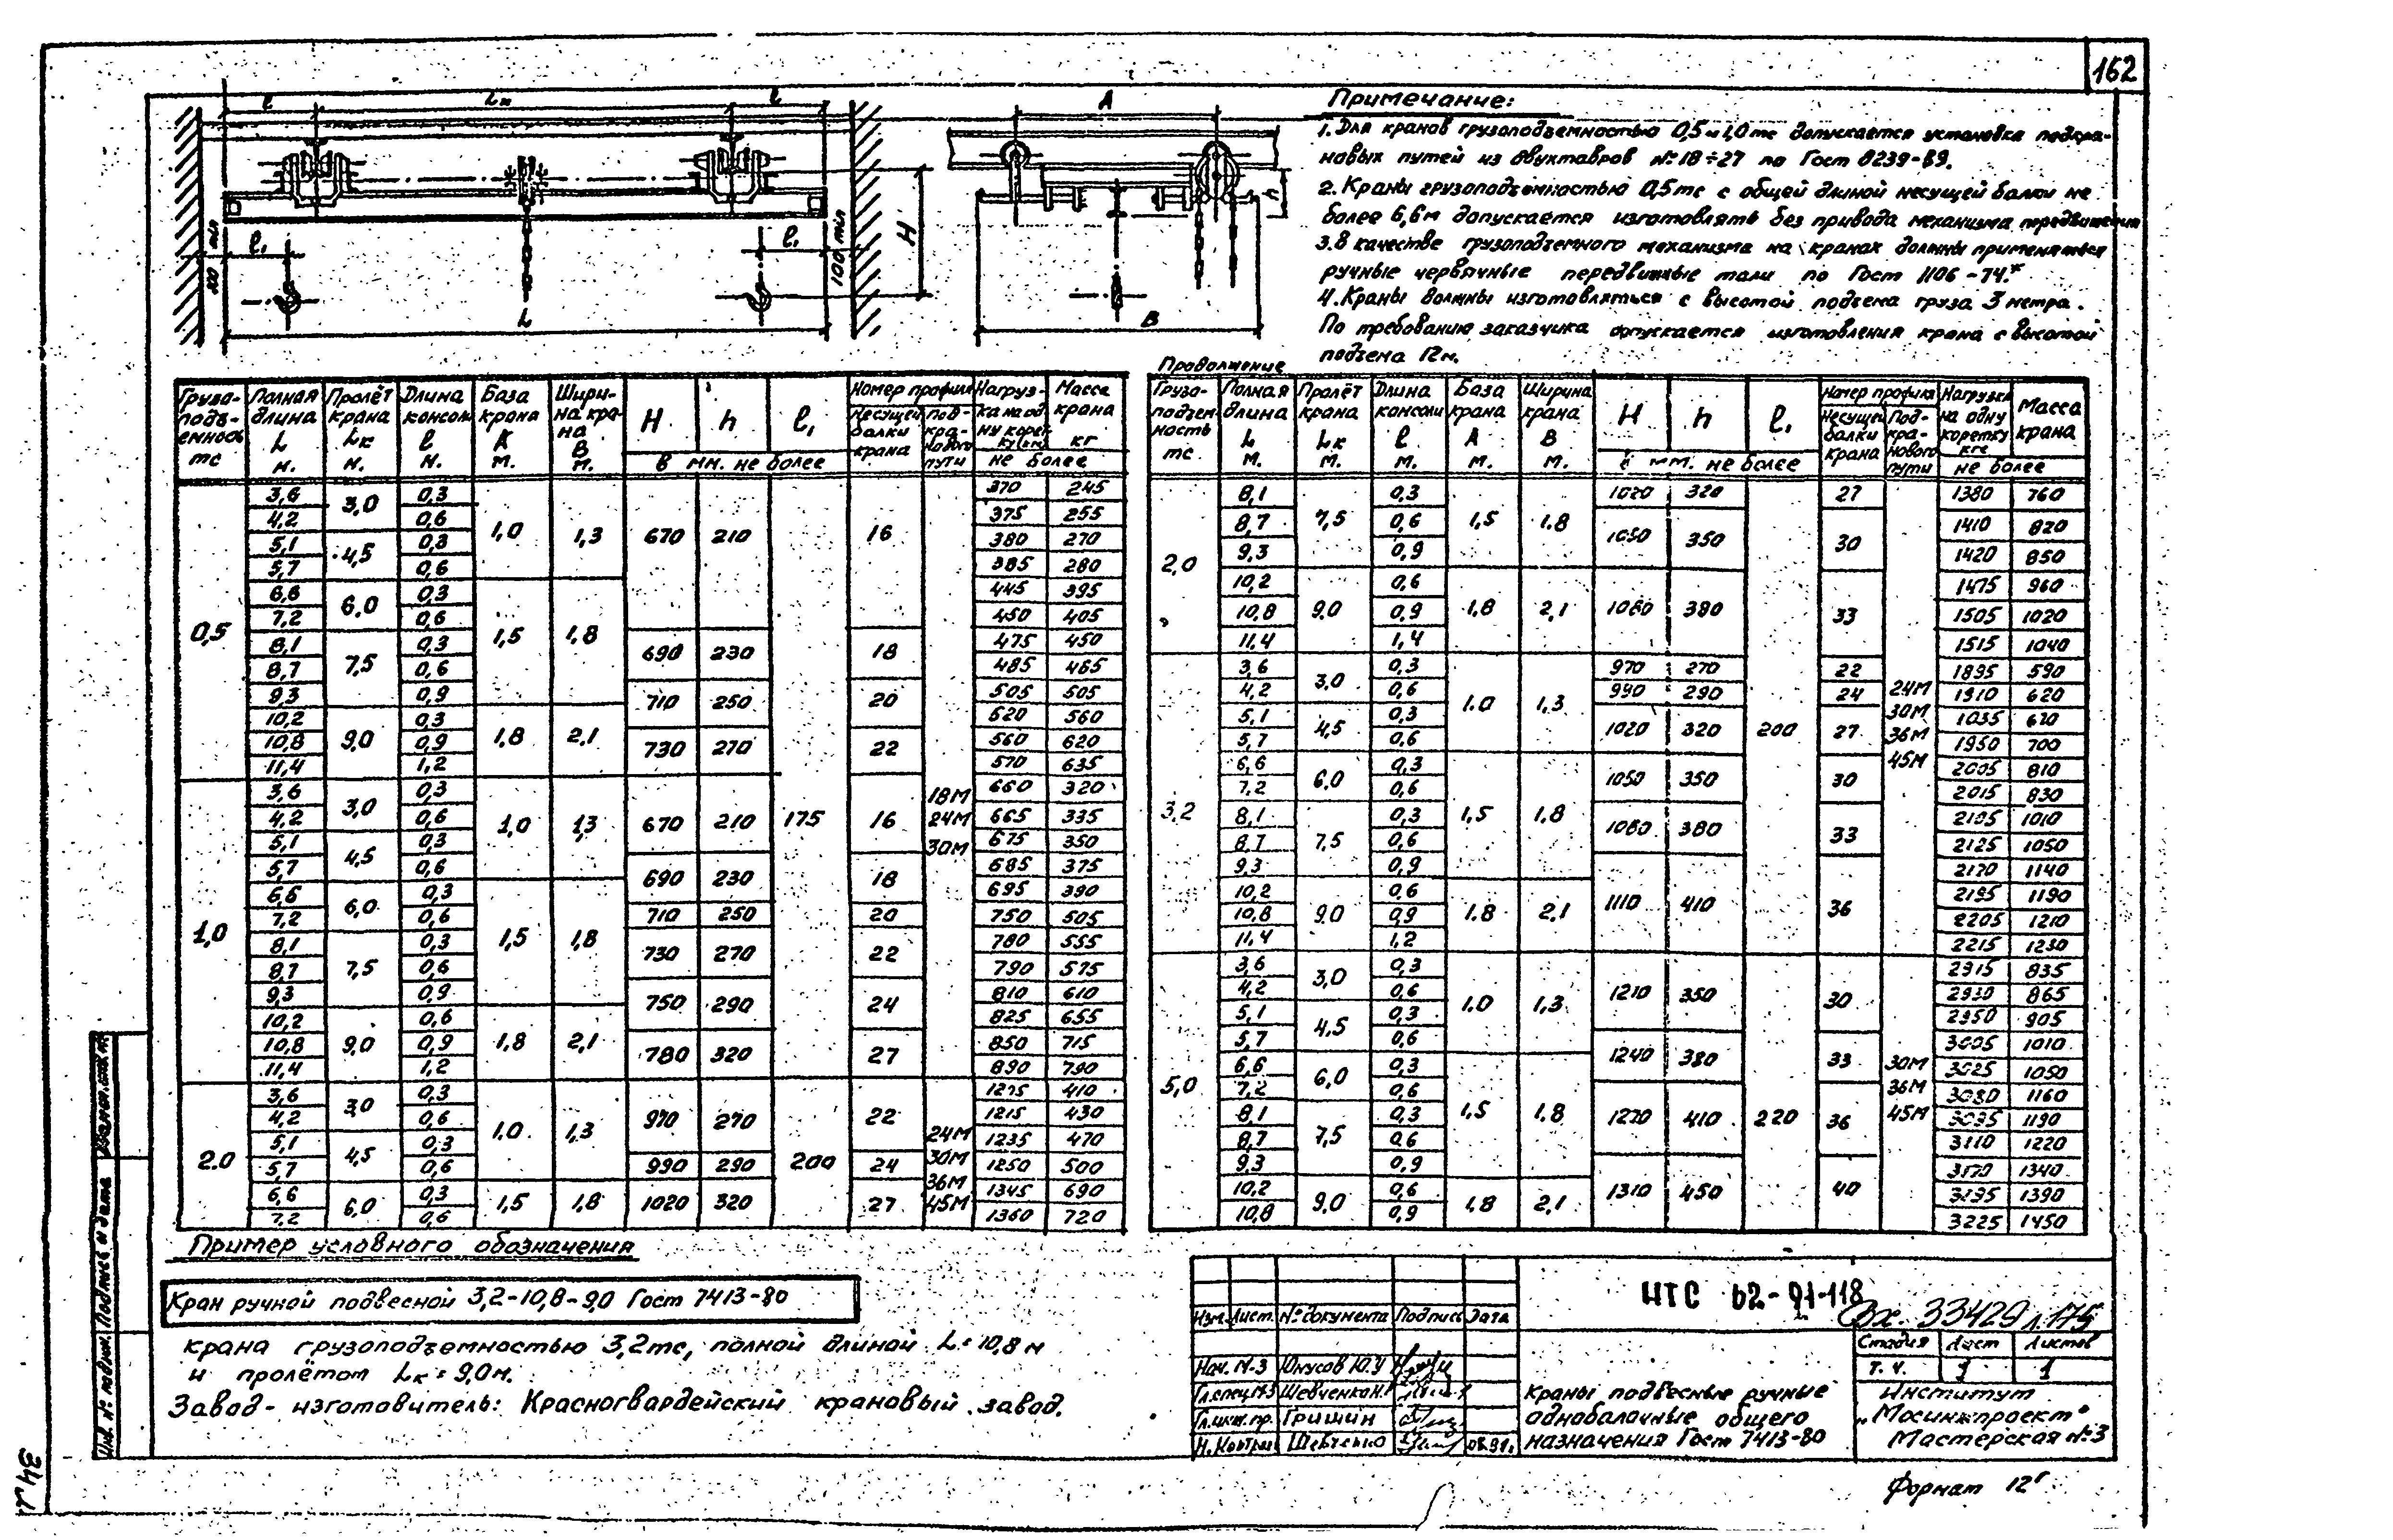 162
Примечание:
1. Для кранов грузоподъемностью 0,5 и 1,0 тс допускается установка подкра-
новых путей из двухтавров №18÷27 по Гост 8239-89.
2. Краны грузоподъемностью 0,5 тс с общей длиной несущей балки не
более 6,6м допускается изготовлять без привода механизма передвижения
3. В качестве грузоподъемного механизма на кранах должны применяться
ручные червячные передвижные тали по Гост 1106-74.*
4. Краны должны изготовляться с высотой подъема груза 3 метра.
По требованию заказчика допускается изготовления крана с высотой
подъема 12м.
ℓ Lк ℓ A
H h
ℓ₁ ℓ₁
100 min 100 min
L B
Грузо-подъ-емность тс | Полная длина L м. | Пролёт крана Lк м. | Длина консоли ℓ м. | База крана A м. | Шири-на кра-на B м. | H | h | ℓ₁ | в мм. не более | Номер профиля | Несущей балки крана | под-кра-нового пути | Нагруз-ка на од-ну карет-ку (кгс) | Масса крана кг | не более
0,5 | 3,0 | 1,0 | 1,3 | 670 | 210 | 175 | 16 | 18М 24М 30М
3,6 0,3 370 245
4,2 0,6 375 255
4,5
5,1 0,3 380 270
5,7 0,6 385 280
6,0 1,5 1,8
6,6 0,3 445 395
7,2 0,6 450 405
7,5 690 230 18
8,1 0,3 475 450
8,7 0,6 485 465
710 250 20
9,3 0,9 505 505
9,0 1,8 2,1
10,2 0,3 520 560
730 270 22
10,8 0,9 560 620
11,4 1,2 570 635
1,0 3,0 1,0 1,3 670 210 16
3,6 0,3 660 320
4,2 0,6 665 335
4,5
5,1 0,3 675 350
690 230 18
5,7 0,6 685 375
6,0 1,5 1,8
6,6 0,3 695 390
710 250 20
7,2 0,6 750 505
7,5 730 270 22
8,1 0,3 780 555
8,7 0,6 790 575
750 290 24
9,3 0,9 810 610
9,0 1,8 2,1
10,2 0,6 825 655
780 320 27
10,8 0,9 850 715
11,4 1,2 890 790
2.0 3,0 1,0 1,3 970 270 200 22 24М 30М 36М 45М
3,6 0,3 410
4,2 0,6 1215 430
4,5
5,1 0,3 1235 470
990 290 24
5,7 0,6 1250 500
6,0 1,5 1,8 1020 320 27
6,6 0,3 1345 690
7,2 0,6 1360 720
Продолжение
Грузо-подъем-ность тс | Полная длина L м. | Пролёт крана Lк м. | Длина консоли ℓ м. | База крана A м. | Ширина крана B м. | H | h | ℓ₁ | в мм. не более | Номер профиля | Несущей балки крана | Под-кра-нового пути | Нагрузка на одну каретку кгс | Масса крана | не более
2,0 7,5 1,5 1,8 1020 320 200 27 24М 30М 36М 45М
8,1 0,3 1380 760
1050 350 30
8,7 0,6 1410 820
9,3 0,9 1420 850
9.0 1,8 2,1 1080 380 33
10,2 0,6 1475 960
10,8 0,9 1505 1020
11,4 1,4 1515 1040
3,2 3,0 1.0 1,3 970 270 22
3,6 0,3 1895 590
990 290 24
4,2 0,6 1910 620
4,5 1020 320 27
5,1 0,3 1035
5,7 0,6 1950 700
6,0 1,5 1,8 1050 350 30
6,6 0,3 2005 810
7,2 0,6 2015 830
7,5 1080 380 33
8,1 0,3 1010
8,7 0,6 2125 1050
1110 410 36
9,3 0,9 2170 1140
9.0 1.8 2,1
10,2 0,6 2195 1190
10,8 0,9 2205 1210
11,4 1,2 2215 1230
5,0 3,0 1.0 1,3 1210 350 220 30 30М 36М 45М
3,6 0,3 2915 835
4,2 0,6 2930 865
4,5
5,1 0,3 2950 905
1240 380 33
5,7 0,6 3005 1010
6,0 1,5 1,8
6,6 0,3 3025 1050
1270 410 36
7,2 0,6 3080 1160
7,5
8,1 0,3 3095 1190
8,7 0,6 3110 1220
1310 450 40
9,3 0,9 3170 1340
9,0 1,8 2,1
10,2 0,6 3195 1390
10,8 0,9 3225 1450
Пример условного обозначения
Кран ручной подвесной 3,2-10,8-9,0 Гост 7413-80
крана грузоподъемностью 3,2тс, полной длиной L=10,8м
и пролётом Lк=9,0м.
Завод-изготовитель: Красногвардейский крановый завод.
Инв. № подлин. Подпись и дата Взам.инв.№
НТС 62-91-118
Вх. 33429 л.175
Изм. Лист. № документа Подпись Дата
Стадия Лист Листов
Т.ч. 1
Нач. М-3 Юнусов Ю.У
Гл.спец М3 Шевченко Н.
Гл.инж.пр. Гришин
Н.Контр. Шевченко 08.91г.
Краны подвесные ручные
однобалочные общего
назначения Гост 7413-80
Институт
„Мосинжпроект"
Мастерская №3
Формат 12г
34